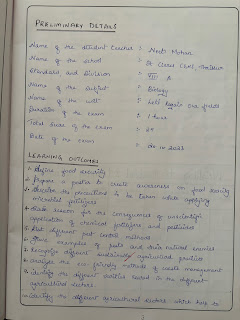 PRELIMINARY DETAILS
Name of the student teacher : Neethu Mohan
Name of the school : St Clares LPS, Thrissur
Standard and Division : VIII B
Name of the subject : Biology
Name of the unit : Let's Regain Our Fields
Duration of the exam : 1 hour
Total score of the exam : 25
Date of the exam
LEARNING OUTCOMES
* Define food security
* Prepare a poster to create awareness on food security
* the precautions to be taken while applying
microbial fertilizers
* reason for the consequences of unscientific
application of chemical fertilizers and pesticides
* List different pest control methods
* examples of pests and their natural enemies
* Recognize different sustainable agricultural practices
* Analyse the eco friendly methods of waste management
* Identify the different varieties raised in the different
agricultural sectors
* Identify the different agricultural sectors which have to